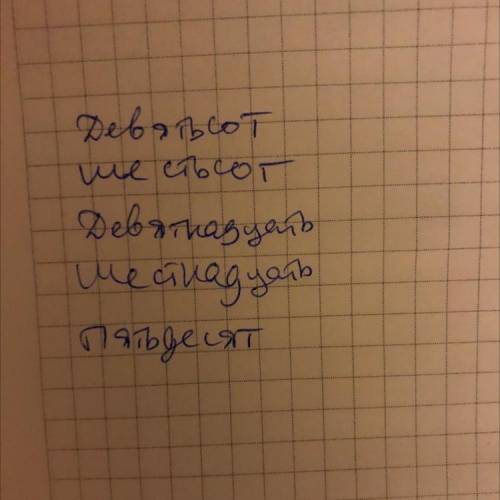 Девятьсот
шестьсот
Девятнадцать
шестнадцать
Пятьдесят